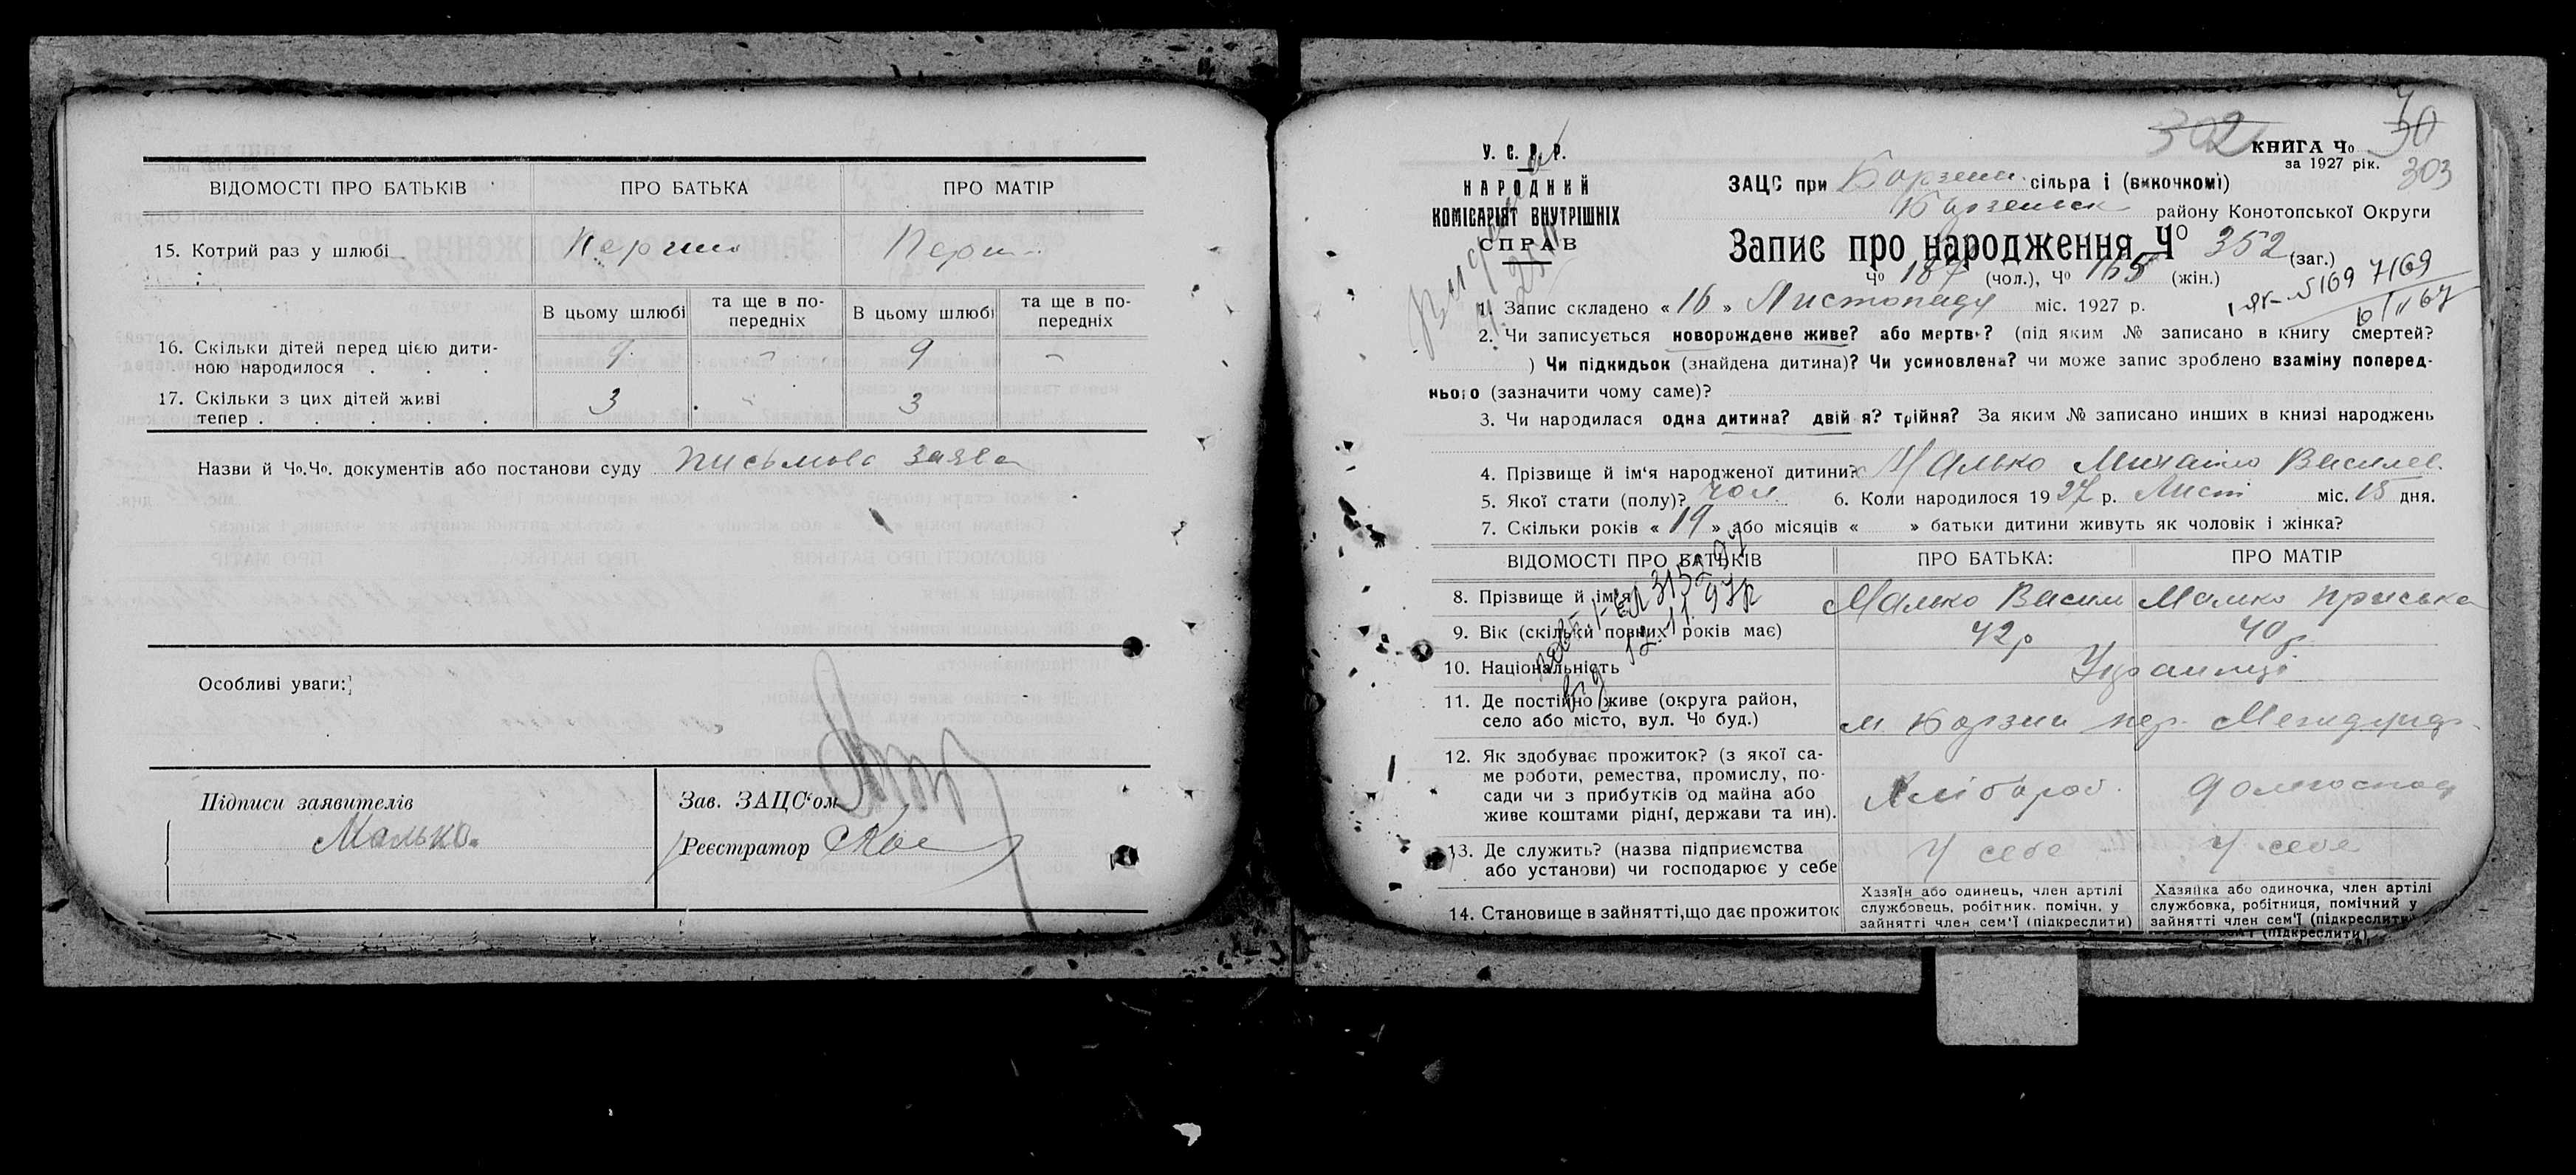 ВІДОМОСТІ ПРО БАТЬКІВ ПРО БАТЬКА ПРО МАТІР
15. Котрий раз у шлюбі Перший Перш
В цьому шлюбі та ще в попередніх В цьому шлюбі та ще в попередніх
16. Скільки дітей перед цією дити-
ною народилося . . . 9 - 9 -
17. Скільки з цих дітей живі
тепер . . . . . 3 - 3
Назви й Чо.Чо. документів або постанови суду письмова заява
Особливі уваги:
Підписи заявителів
Малько.
Зав. ЗАЦС'ом
Реєстратор
302 КНИГА Чо 30
за 1927 рік. 303
У. С. Р. Р.
НАРОДНИЙ
КОМІСАРІЯТ ВНУТРІШНІХ
СПРАВ
ЗАЦС при Борзен. сільра і (викочкомі)
Борзенськ району Конотопської Округи
Запис про народження Чо 352 (заг.)
Чо 187 (чол.), Чо 165 (жін.)
1. Запис складено « 16 » Листопаду міс. 1927 р.
2. Чи записується новорождене живе? або мертве? (під яким № записано в книгу смертей?
) Чи підкидьок (знайдена дитина)? Чи усиновлена? чи може запис зроблено взаміну поперед-
нього (зазначити чому саме)?
3. Чи народилася одна дитина? двійня? трійня? За яким № записано инших в книзі народжень
4. Прізвище й ім'я народженої дитини? Малько Михайло Василев.
5. Якої стати (полу)? чол. 6. Коли народилося 1927 р. Лист міс. 15 дня.
7. Скільки років « 19 » або місяців « » батьки дитини живуть як чоловік і жінка?
ВІДОМОСТІ ПРО БАТЬКІВ ПРО БАТЬКА: ПРО МАТІР
8. Прізвище й ім'я Малько Васил Малько Приська
9. Вік (скільки повних років має) 42 р 40 р
10. Національність Українці
11. Де постійно живе (округа район,
село або місто, вул. Чо буд.) м. Борзна пер.
12. Як здобуває прожиток? (з якої са-
ме роботи, ремества, промислу, по-
сади чи з прибутків од майна або
живе коштами рідні, держави та ин). Хлібороб. домгоспод
13. Де служить? (назва підприємства
або установи) чи господарює у себе У себе У себе
14. Становище в зайнятті, що дає прожиток
Хазяїн або одинець, член артілі
службовець, робітник. помічн. у
зайнятті член сем'ї (підкреслити)
Хазяйка або одиночка, член артілі
службовка, робітниця, помічний у
зайнятті член сем'ї (підкреслити)